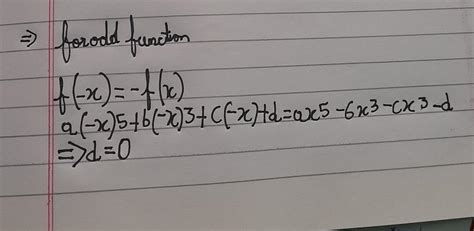 ⇒ for odd function
f(-x) = -f(x)
a(-x)5+b(-x)3+c(-x)+d=ax5-6x3-cx3-d
⇒ d = 0